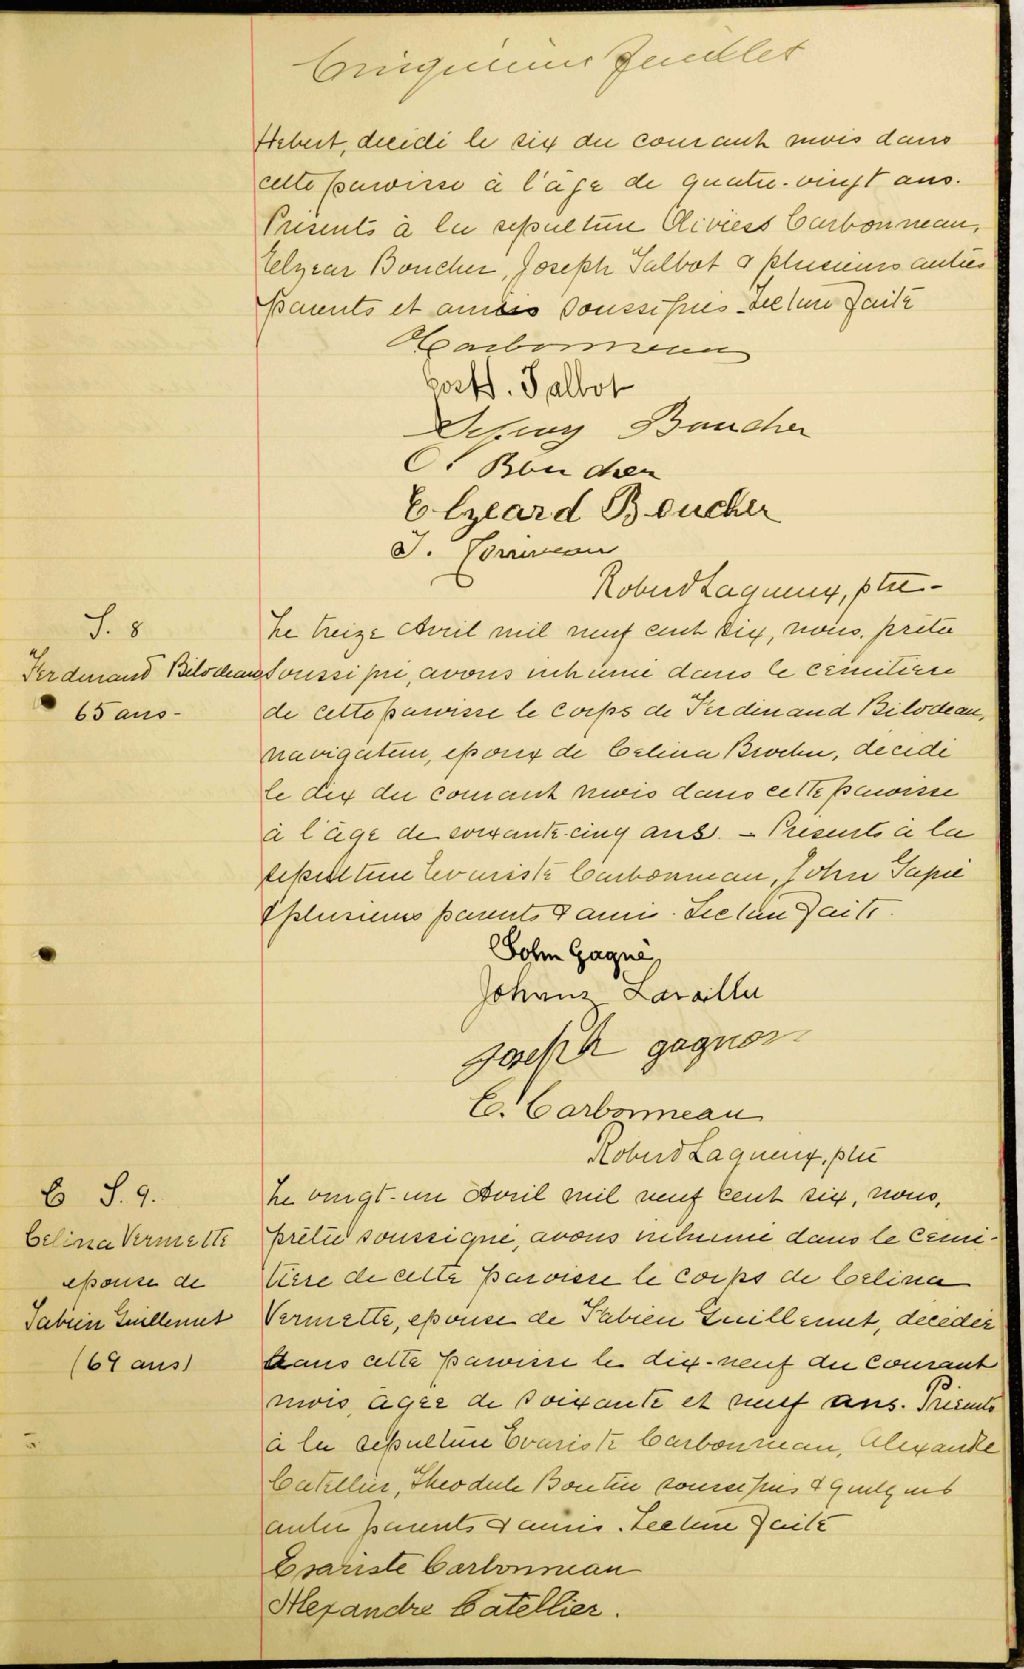 Cinquième feuillet
Hebert, décédé le six du courant mois dans
cette paroisse à l'âge de quatre-vingt ans.
Présents à la sépulture Carbonneau,
Elzear Boucher, Joseph Talbot & plusieurs autres
parents et amis soussignés. Lecture faite
Carbonneau
Jos H. Talbot
Boucher
O. Boucher
Elzeard Boucher
J. Corriveau
S. 8
Ferdinand Bilodeau
65 ans -
Robert Lagueux, ptre -
Le treize Avril mil neuf cent six, nous, prêtre
soussigné, avons inhumé dans le cimetière
de cette paroisse le corps de Ferdinand Bilodeau,
navigateur, epoux de Celina Brochu, décédé
le dix du courant mois dans cette paroisse
à l'âge de soixante-cinq ans. - Présents à la
sépulture Evariste Carbonneau, John Gagné
& plusieurs parents & amis. Lecture faite.
John Gagné
Lavallée
Joseph gagnon
E. Carbonneau
Robert Lagueux, ptre
E S. 9.
Celina Vermette
epouse de
Fabien Guillemet
(69 ans)
Le vingt-un Avril mil neuf cent six, nous,
prêtre soussigné, avons inhumé dans le cime-
tière de cette paroisse le corps de Celina
Vermette, epouse de Fabien Guillemet, décédée
dans cette paroisse le dix-neuf du courant
mois, âgée de soixante et neuf ans. Présents
à la sépulture Evariste Carbonneau, Alexandre
Catellier, Theodule Boutin soussignés & quelques
autres parents & amis. Lecture faite
Evariste Carbonneau
Alexandre Catellier.